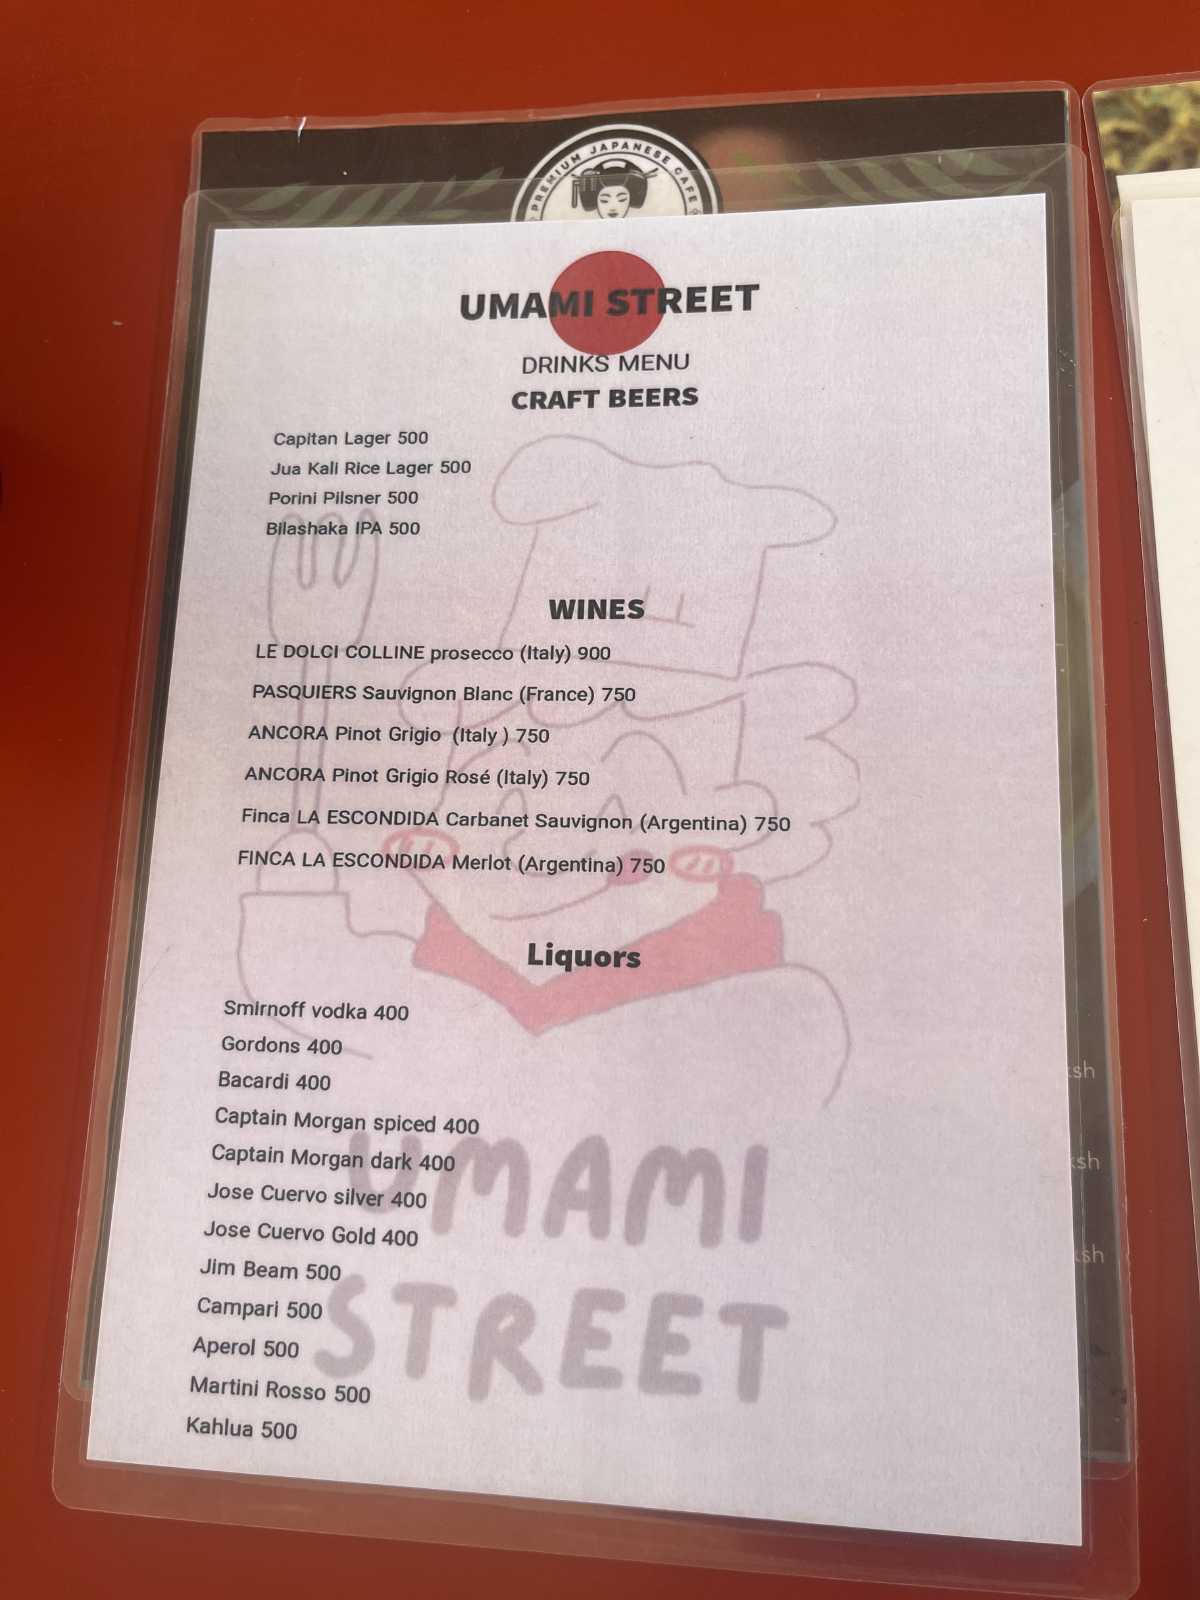 PREMIUM JAPANESE CAFE
UMAMI STREET
DRINKS MENU
CRAFT BEERS
Capitan Lager 500
Jua Kali Rice Lager 500
Porini Pilsner 500
Bilashaka IPA 500
WINES
LE DOLCI COLLINE prosecco (Italy) 900
PASQUIERS Sauvignon Blanc (France) 750
ANCORA Pinot Grigio (Italy ) 750
ANCORA Pinot Grigio Rosé (Italy) 750
Finca LA ESCONDIDA Carbanet Sauvignon (Argentina) 750
FINCA LA ESCONDIDA Merlot (Argentina) 750
Liquors
Smirnoff vodka 400
Gordons 400
Bacardi 400
Captain Morgan spiced 400
Captain Morgan dark 400
Jose Cuervo silver 400
Jose Cuervo Gold 400
Jim Beam 500
Campari 500
Aperol 500
Martini Rosso 500
Kahlua 500
UMAMI
STREET